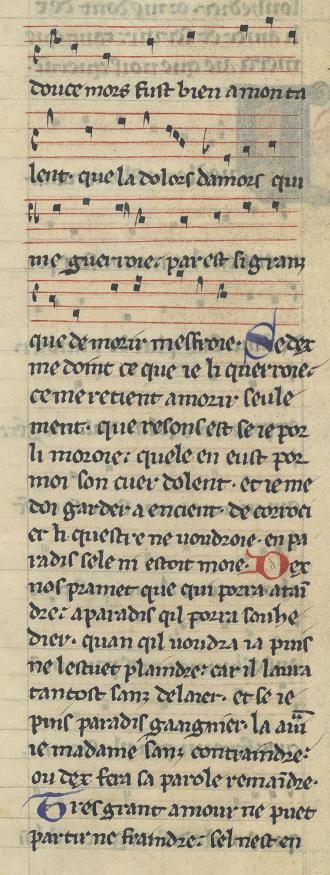 douce mors fust bien a mon ta
lent. que la dolors damors qui
me guerroie. par est si grans
que de morir mesfroie. Se dex
me doint ce que ie li querroie.
ce me retient a morir seule
ment. que resons est se ie por
li moroie. quele en eust por
moi son cuer dolent. et ie me
doi garder a encient. de corroci
er li questre ne uoudroie. en pa
radis sele ni estoit moie. Dex
nos pramet que qui porra ataī
dre. a paradis qil porra souhe
dier. quan qil uoudra ia puis
ne lestuet plaindre. car il laura
tantost sanz delaier. et se ie
puis paradis gaagnier. la aurai
ie madame sanz contraindre.
ou dex fera sa parole remaīdre.
Tres grant amour ne puet
partir ne fraindre. sel nest en